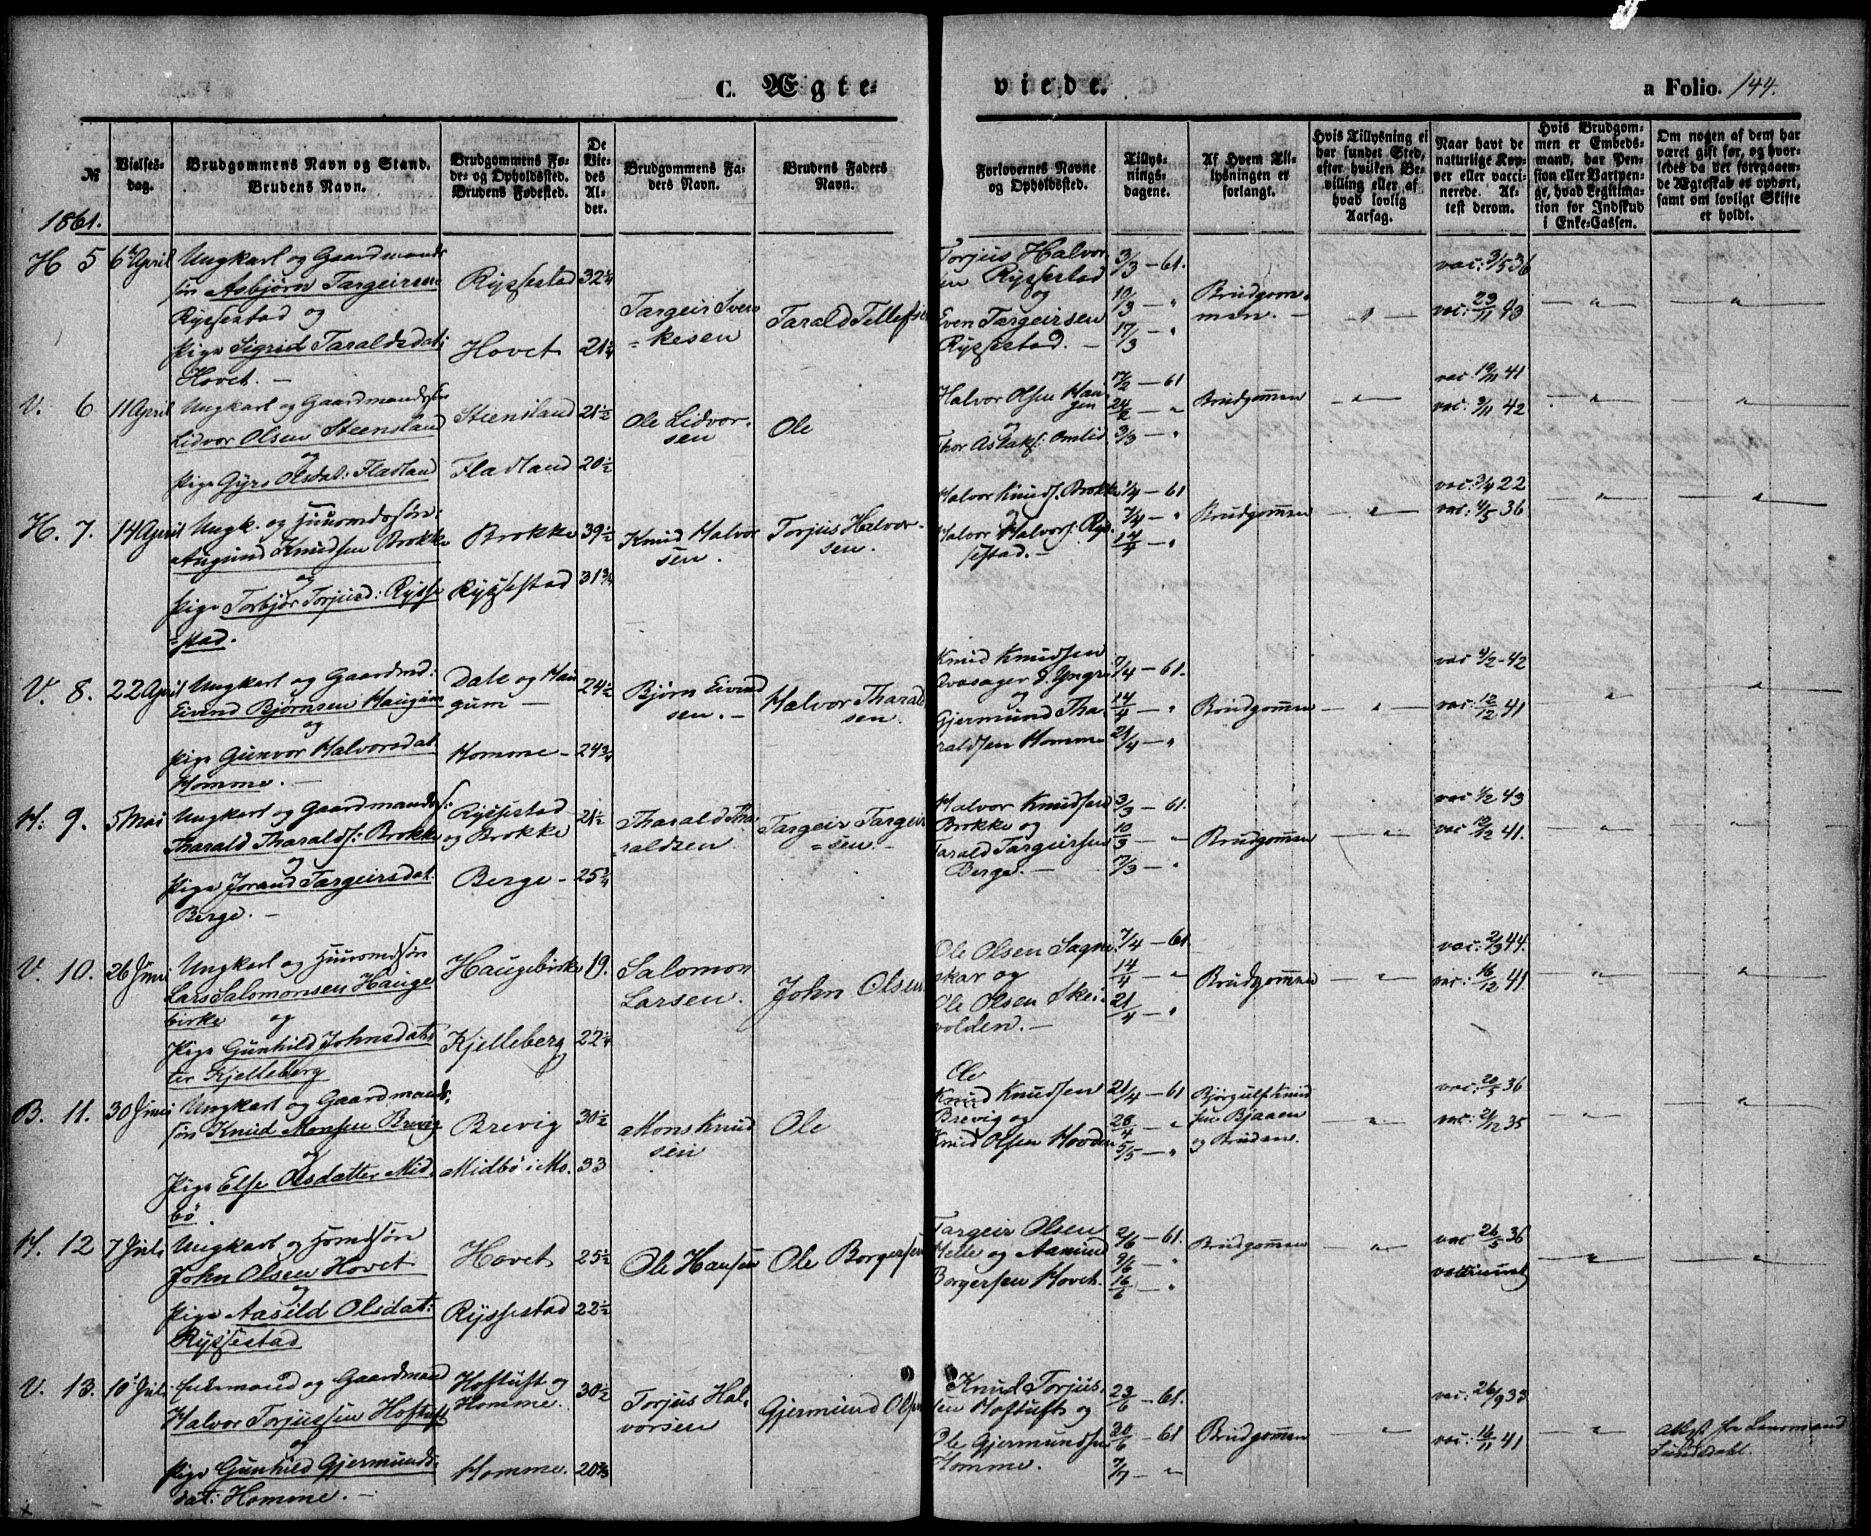 C. Ægte-
viede.
a Folio. 144.
№
Vielses-
dag.
Brudgommens Navn og Stand.
Brudens Navn.
Brudgommens Fø-
de- og Opholdssted.
Brudens Fødested.
De
Vie-
des
Al-
der.
Brudgommens Fa-
ders Navn.
Brudens Faders
Navn.
Forlovernes Navne
og Opholdssted.
Tillys-
nings-
dagene.
Af Hvem Til-
lysningen er
forlangt.
Hvis Tillysning ei
har fundet Sted,
efter hvilken Be-
villing eller af
hvad lovlig
Aarsag.
Naar havt de
naturlige Kop-
per eller vacci-
nerede. At-
test derom.
Hvis Brudgom-
men er Embeds-
mand, har Pen-
sion eller Vartpen-
ge, hvad Legitima-
tion for Indskud
i Enke-Cassen.
Om nogen af dem har
været gift før, og hvor-
ledes da det foregaaen-
de Ægteskab er ophørt,
samt om lovligt Skifte
er holdt.
1861.
H 5
6te April
Ungkarl og Gaardmands
søn Asbjørn Targeirsen
Ryssestad og
Pige Sigrid Taraldsdat:
Hovet. —
Ryssestad
Hovet
32 1/4
21 1/4
Targeir Sven
=kesen
Tarald Tellefsen
Torjus Halvor
sen Ryssestad
og
Even Targeirsen
Ryssestad. —
3/3 — 61.
10/3 — "
17/3 — "
Brudgom-
men. —
vac: 3/5 36
vac: 23/11 43
V. 6
11 April
Ungkarl og Gaardmandssøn
Lidvor Olsen Steensland
og
Pige Gyro Olsdat: Fladland
Steensland
Fladland
21 1/2
20 1/2
Ole Lidvor-
sen
Ole
Halvor Olsen Hau
gen
Thor Aslaks: Omlid
17/2 — 61
24/2 — "
3/3 — "
Brudgommen
vac: 19/11 41
vac: 9/11 42
H. 7.
14 April
Ungk. og Huusmdssøn:
Augund Knudsen Brokke
og
Pige Torbjør Torjusd: Rysse
=stad.
Brokke
Ryssestad
39 1/2
31 3/4
Knud Halvor
sen.
Torjus Halvor-
sen.
Halvor Knuds: Brokke
Halvor Halvors: Rys-
sestad. —
1/4 — 61
7/4 — "
14/4 — "
Brudgommen
vac: 3/4 22
vac: 4/5 36
V. 8.
22 April
Ungkarl og Gaardmd:
Eivind Bjørnsen Haugum
og
Pige Gunvor Halvorsdat
Homme. —
Dale og Hau
gum —
Homme —
24 1/2
24 3/4
Bjørn Eivind
sen. —
Halvor Tharald
sen.
Knud Knudsen
og
Gjermund Tha-
raldsen Homme
7/4 — 61.
14/4 — "
21/4 — "
Brudgommen
vac 4/2 — 42
vac: 12/12 41
H: 9.
5 Mai
Ungkarl og Gaardmands:
Tharald Tharalds: Brokke
og
Pige Jorand Targeirsdat:
Berge. —
Ryssestad
og Brokke
Berge —
21 1/2
25 3/4
Tharald Tha-
raldsen
Targeir Targeir
=sen —
Halvor Knudsen
Brokke og
Tarald Targeirsen
Berge. —
3/3 — 61.
10/3 — "
17/3 — "
Brudgommen
vac 1/2 43
vac: 12/12 41.
V. 10.
26 Juni
Ungkarl og Huusmdssøn
Lars Salomonsen Hauge
birke og
Pige Gunhild Johnsdat-
ter Kjelleberg
Haugebirke
Kjelleberg
19.
22 1/4
Salomon
Larsen.
John Olsen
Ole Olsen Sagne
skar og
Ole Olsen Skei-
volden. —
7/4 — 61.
14/4 — "
21/4 — "
Brudgommen
vac: 2/9 44.
vac: 16/12 41
B. 11.
30 Juni
Ungkarl og Gaardmands:
søn Knud Monsen Brevig
og
Pige Else Olsdatter Mid-
bö.
Brevig
Midbö i Mo.
30 1/2
33
Mons Knud
sen
Ole
Ole
Knud Knudsen
Brevig og
Knud Olsen Hovden
21/4 — 61
28/4 — "
5/5 — "
Björgulf Knud
sen Bjaaen
og Bruden.
vac: 20/5 36
vac: 21/12 35
H. 12
7 Juli
Ungkarl og Hmdssøn
John Olsen Hovet
og
Pige Aasild Olsdat:
Ryssestad
Hovet
Ryssestad
25 1/2
22 1/2
Ole Hansen
Ole Borgersen
Targeir Olsen
Helle og Aamund
Borgersen Hovet.
2/6 — 61.
9/6 — "
16/6 — "
Brudgommen
vac 26/5 36
V. 13.
10 Juli
Enkemand og Gaardmand
Halvor Torjussen Hoftuft
og
Pige Gunhild Gjermunds-
dat: Homme. —
Hoftuft og
Homme.
Homme.
30 1/2
Torjus Hal-
vorsen
Gjermund Olsen
Knud Torjus-
sen Hoftuft og
Ole Gjermundsen
Homme.
23/6 — 61.
30/6 — 61
7/7 — "
Brudgommen
vac: 26/9 33
vac: 16/11 41
Attest fra Lensmand